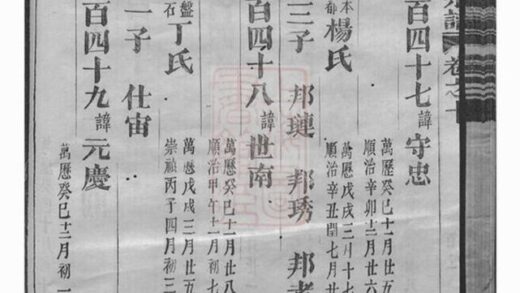 百四十七諱守忠
萬歷癸巳十一月廿五
順治辛卯十二月廿六
楊氏
萬歷戊戌三月十七
順治辛丑閏七月廿
三子 邦璉 邦琇 邦孝
百四十八諱世南
萬歷癸巳十一月廿八
順治甲午十二月初七
丁氏
萬歷戊戌三月廿五
崇禎丙子四月初三
一子 仕宙
百四十九諱元慶
萬歷癸巳十二月初一